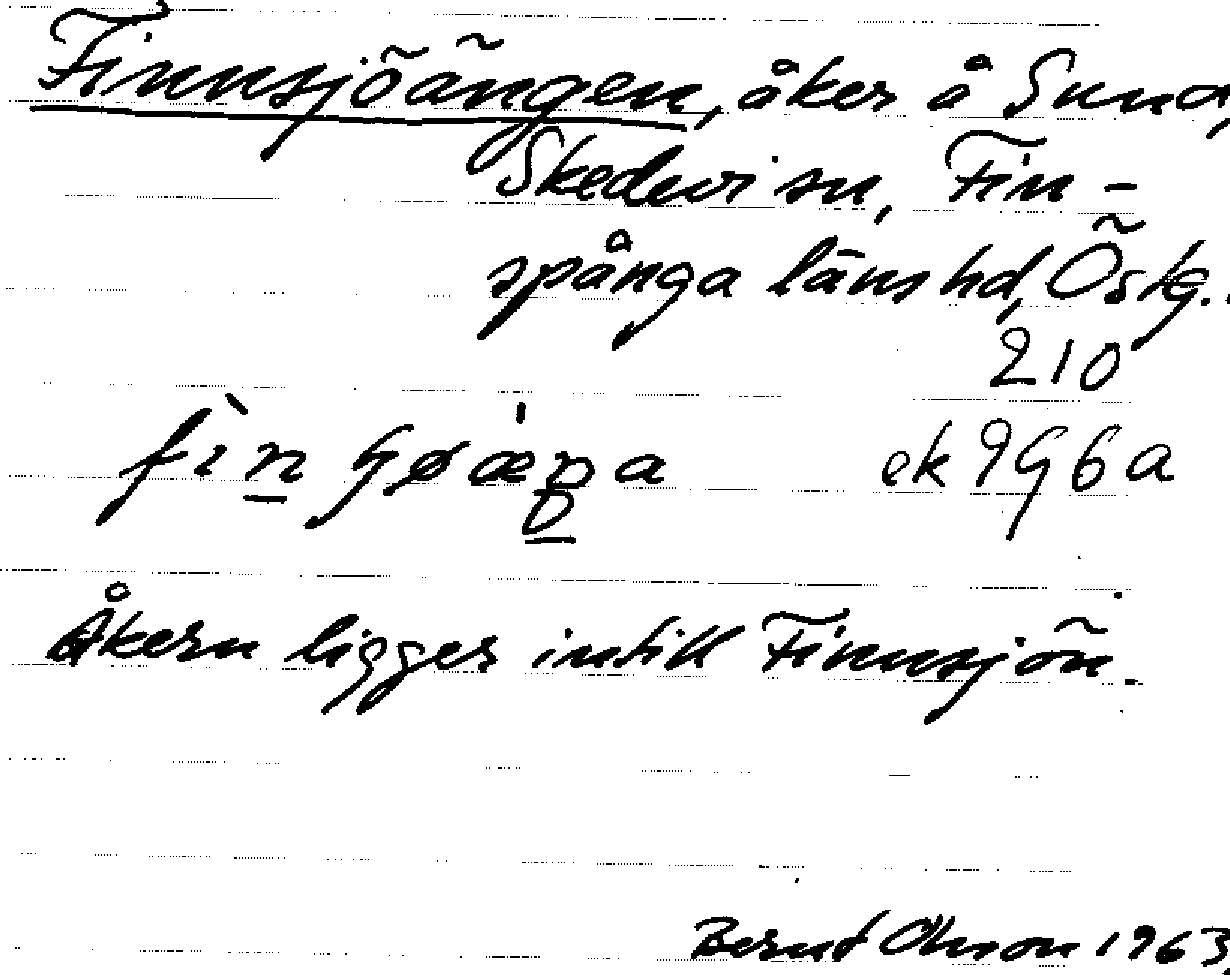 Finnsjöängen, åker å Sund,
Skedevi sn, Fin-
spånga länshd, Östg.
210
ek 9G6a
Åkern ligger intill Finnsjön.
Bernt Olson 1963